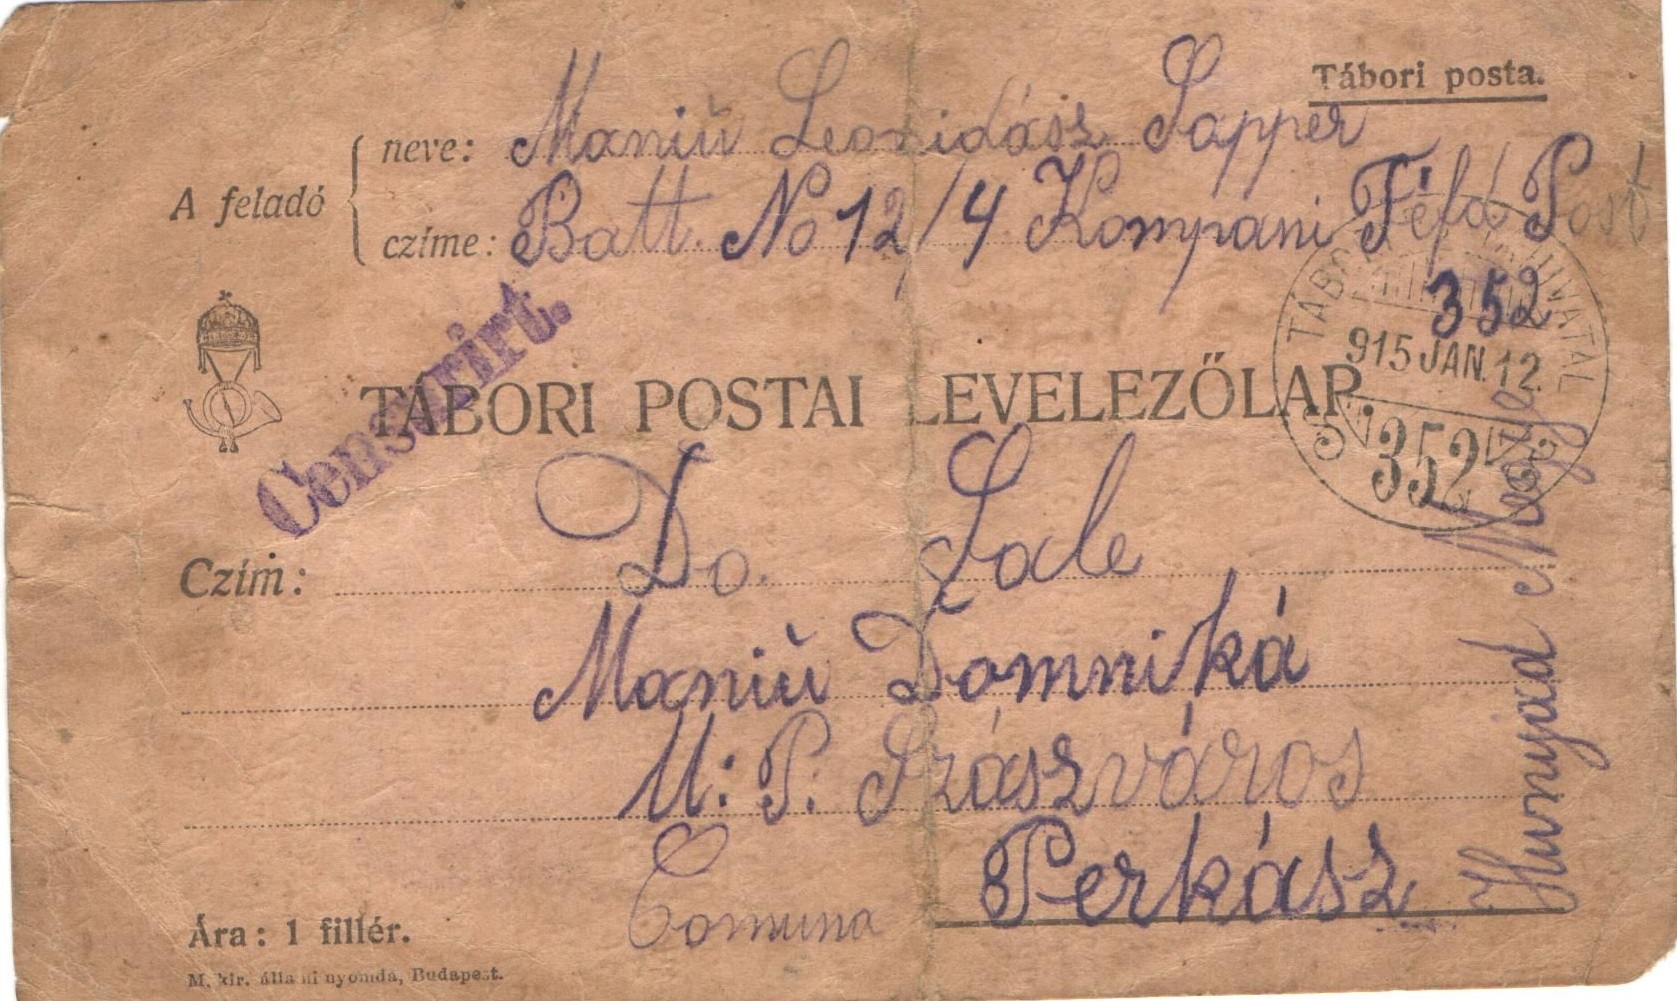 Tábori posta.
A feladó
neve: Maniŭ Leonidász Sapper
czíme: Batt. No 12/4 Kompani Féld Post
352
TÁBORI POSTAHIVATAL
915 JAN. 12.
352
Censurirt.
TÁBORI POSTAI LEVELEZŐLAP.
Czím: Do. Sale
Maniŭ Domniká
U: P. Szászváros
Comuna Perkász
Hunyad Megye
Ára: 1 fillér.
M. kir. állami nyomda, Budapest.